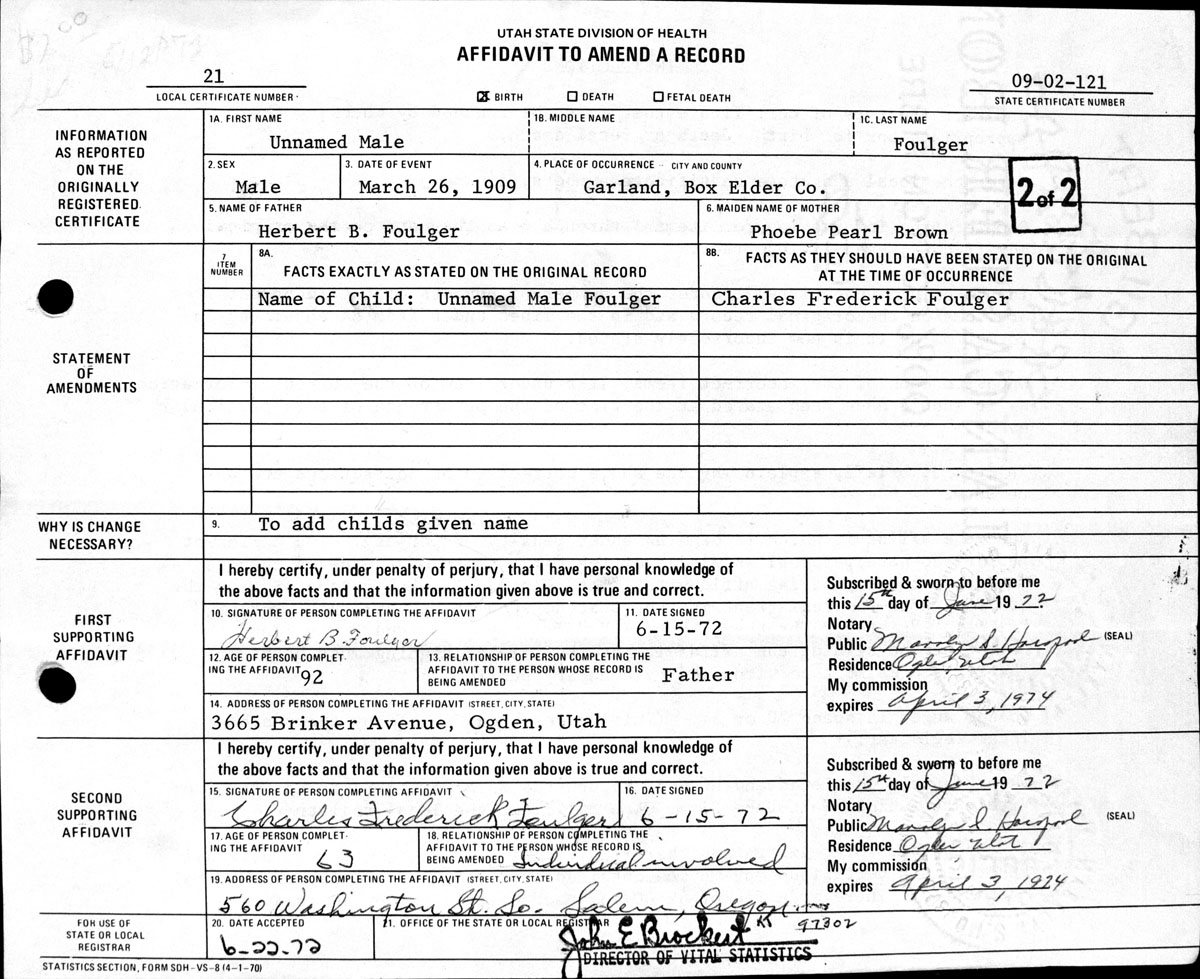 UTAH STATE DIVISION OF HEALTH
AFFIDAVIT TO AMEND A RECORD
21
LOCAL CERTIFICATE NUMBER
☒ BIRTH ☐ DEATH ☐ FETAL DEATH
09-02-121
STATE CERTIFICATE NUMBER
INFORMATION
AS REPORTED
ON THE
ORIGINALLY
REGISTERED
CERTIFICATE
1A. FIRST NAME
Unnamed Male
1B. MIDDLE NAME
1C. LAST NAME
Foulger
2. SEX
Male
3. DATE OF EVENT
March 26, 1909
4. PLACE OF OCCURRENCE - CITY AND COUNTY
Garland, Box Elder Co.
2 of 2
5. NAME OF FATHER
Herbert B. Foulger
6. MAIDEN NAME OF MOTHER
Phoebe Pearl Brown
STATEMENT
OF
AMENDMENTS
7
ITEM
NUMBER
8A.
FACTS EXACTLY AS STATED ON THE ORIGINAL RECORD
8B.
FACTS AS THEY SHOULD HAVE BEEN STATED ON THE ORIGINAL
AT THE TIME OF OCCURRENCE
Name of Child: Unnamed Male Foulger
Charles Frederick Foulger
WHY IS CHANGE
NECESSARY?
9. To add childs given name
FIRST
SUPPORTING
AFFIDAVIT
I hereby certify, under penalty of perjury, that I have personal knowledge of
the above facts and that the information given above is true and correct.
10. SIGNATURE OF PERSON COMPLETING THE AFFIDAVIT
Herbert B. Foulger
11. DATE SIGNED
6-15-72
12. AGE OF PERSON COMPLET-
ING THE AFFIDAVIT 92
13. RELATIONSHIP OF PERSON COMPLETING THE
AFFIDAVIT TO THE PERSON WHOSE RECORD IS
BEING AMENDED Father
14. ADDRESS OF PERSON COMPLETING THE AFFIDAVIT (STREET, CITY, STATE)
3665 Brinker Avenue, Ogden, Utah
Subscribed & sworn to before me
this 15th day of June 1972
Notary
Public (SEAL)
Residence Ogden Utah
My commission
expires April 3, 1974
SECOND
SUPPORTING
AFFIDAVIT
I hereby certify, under penalty of perjury, that I have personal knowledge of
the above facts and that the information given above is true and correct.
15. SIGNATURE OF PERSON COMPLETING AFFIDAVIT
Charles Frederick Foulger
16. DATE SIGNED
6-15-72
17. AGE OF PERSON COMPLET-
ING THE AFFIDAVIT 63
18. RELATIONSHIP OF PERSON COMPLETING THE
AFFIDAVIT TO THE PERSON WHOSE RECORD IS
BEING AMENDED Individual involved
19. ADDRESS OF PERSON COMPLETING THE AFFIDAVIT (STREET, CITY, STATE)
560 Washington St. So. Salem, Oregon
97302
Subscribed & sworn to before me
this 15th day of June 1972
Notary
Public (SEAL)
Residence Ogden Utah
My commission
expires April 3, 1974
FOR USE OF
STATE OR LOCAL
REGISTRAR
20. DATE ACCEPTED
6-22-72
21. OFFICE OF THE STATE OR LOCAL REGISTRAR
John E Brockert
DIRECTOR OF VITAL STATISTICS
STATISTICS SECTION, FORM SDH-VS-8 (4-1-70)